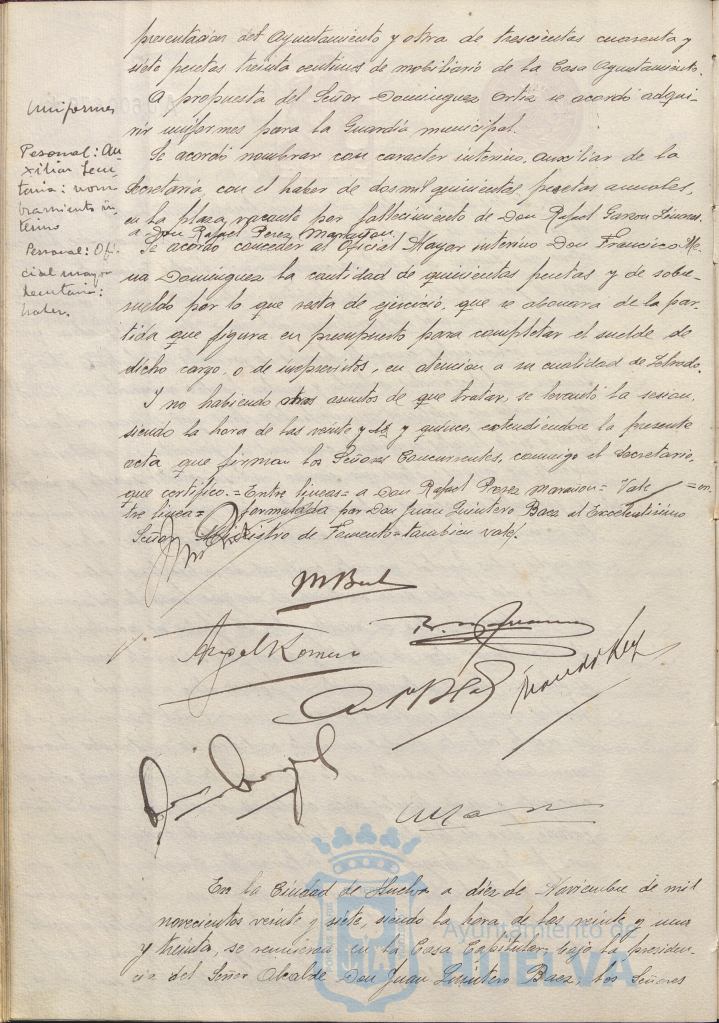 presentacion del Ayuntamiento y otra de trescientas cuarenta y
siete pesetas treinta centimos de mobiliario de la Casa Ayuntamiento.
Uniformes
A propuesta del Señor Dominguez Ortiz se acordó adqui-
rir uniformes para la Guardia municipal.
Pesonal: Au-
xiliar Secre-
taria: nom-
bramiento in-
terino
Se acordó nombrar con caracter interino, auxiliar de la
Secretaria, con el haber de dos mil quinientas pesetas anuales,
en la plaza, vacante por fallecimiento de Don Rafael Garzon Linares
a Don Rafael Perez Marañon.
Personal: Ofi-
cial mayor
Secretaria:
haber.
Se acordó conceder al Oficial Mayor interino Don Francisco Me-
na Dominguez la cantidad de quinientas pesetas y de sobre-
sueldo por lo que resta de ejercicio, que se abonara de la par-
tida que figura en presupuesto para completar el sueldo de
dicho cargo, o de imprevistos, en atencion a su cualidad de Letrado.
Y no habiendo otros asuntos de que tratar, se levantó la sesion,
siendo la hora de las veinte y y quince, extendiendose la presente
acta que firman los Señores Concurrentes, conmigo el Secretario,
que certifico.=Entre lineas= a Don Rafael Perez Marañon= Vale =en-
tre linea= formulada por Don Juan Quintero Baez al Excelentisimo
Señor Ministro de Fomento=tambien vale.
Angel Romero
En la Ciudad de Huelva a diez de Noviembre de mil
novecientos veinte y siete, siendo la hora de las veinte y una
y treinta, se reunieron en la Casa Capitular, bajo la presiden-
cia del Señor Alcalde Don Juan Quintero Baez, los Señores
Ayuntamiento de
HUELVA